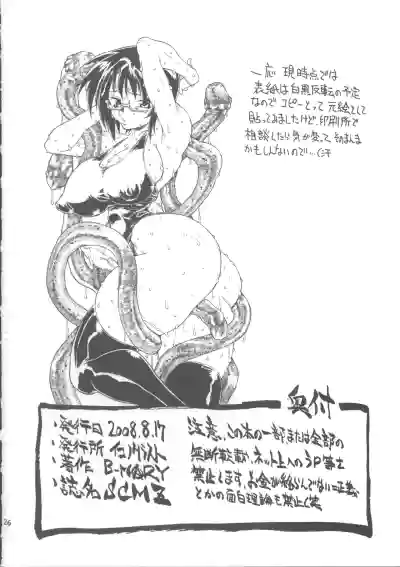 一応 現時点では
表紙は白黒反転の予定
なので コピーとって 元絵として
貼ってみましたけど、印刷所で
相談したり気が変って
かもしんないので…(汗
奥付
・発行日 2008.8.17
・発行所
・著作
・誌名
注意、この本の一部または全部の
無断転載、ネット上へのUP等を
禁止します。お金が絡んでない=正義
とかの面白理論も禁止(笑
26